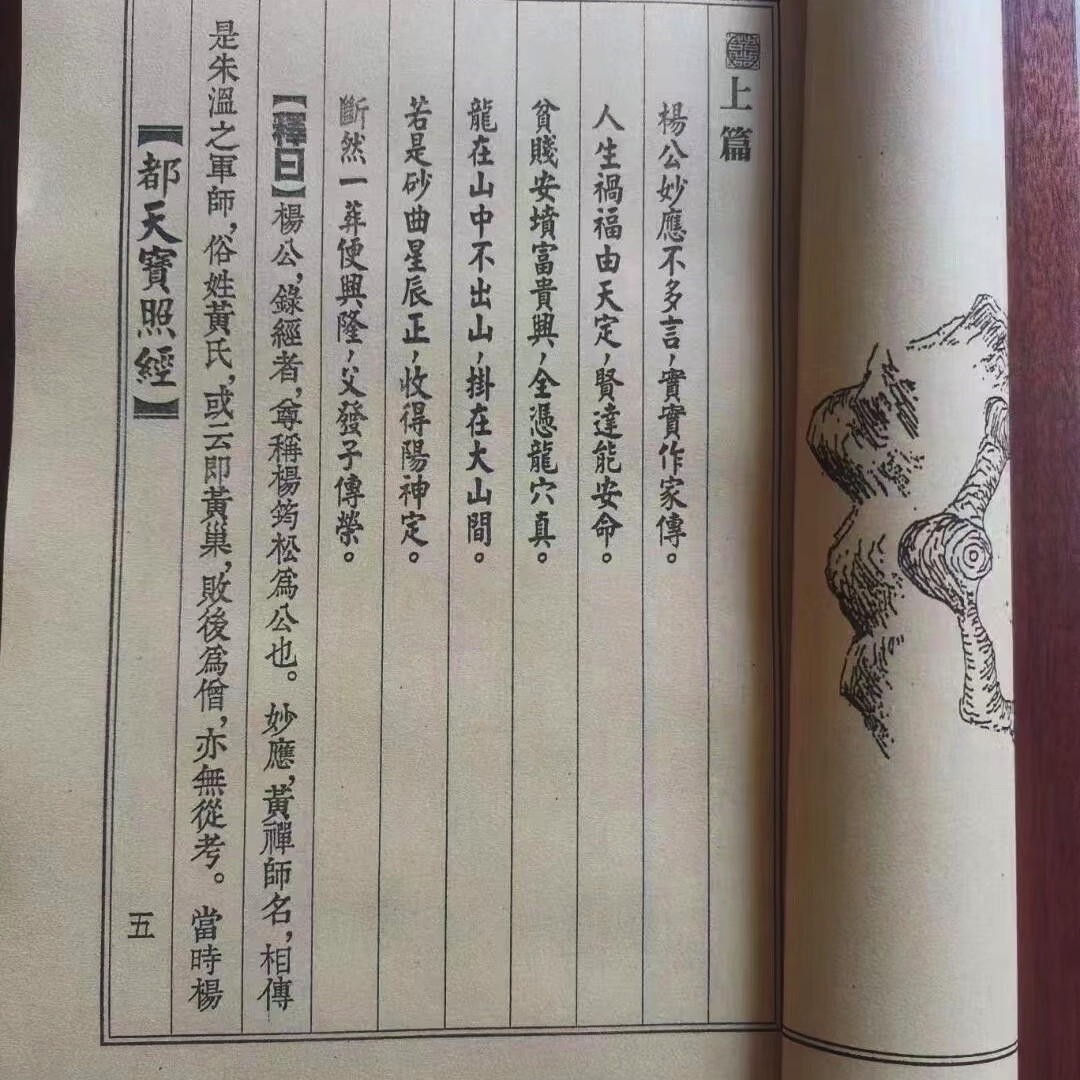 上篇
楊公妙應不多言，實實作家傳。
人生禍福由天定，賢達能安命。
貧賤安墳富貴興，全憑龍穴真。
龍在山中不出山，掛在大山間。
若是砂曲星辰正，收得陽神定。
斷然一葬便興隆，父發子傳榮。
【釋曰】楊公，錄經者，尊稱楊筠松為公也。妙應，黃禪師名，相傳
是朱溫之軍師，俗姓黃氏，或云即黃巢，敗後為僧，亦無從考。當時楊
【都天寶照經】
五